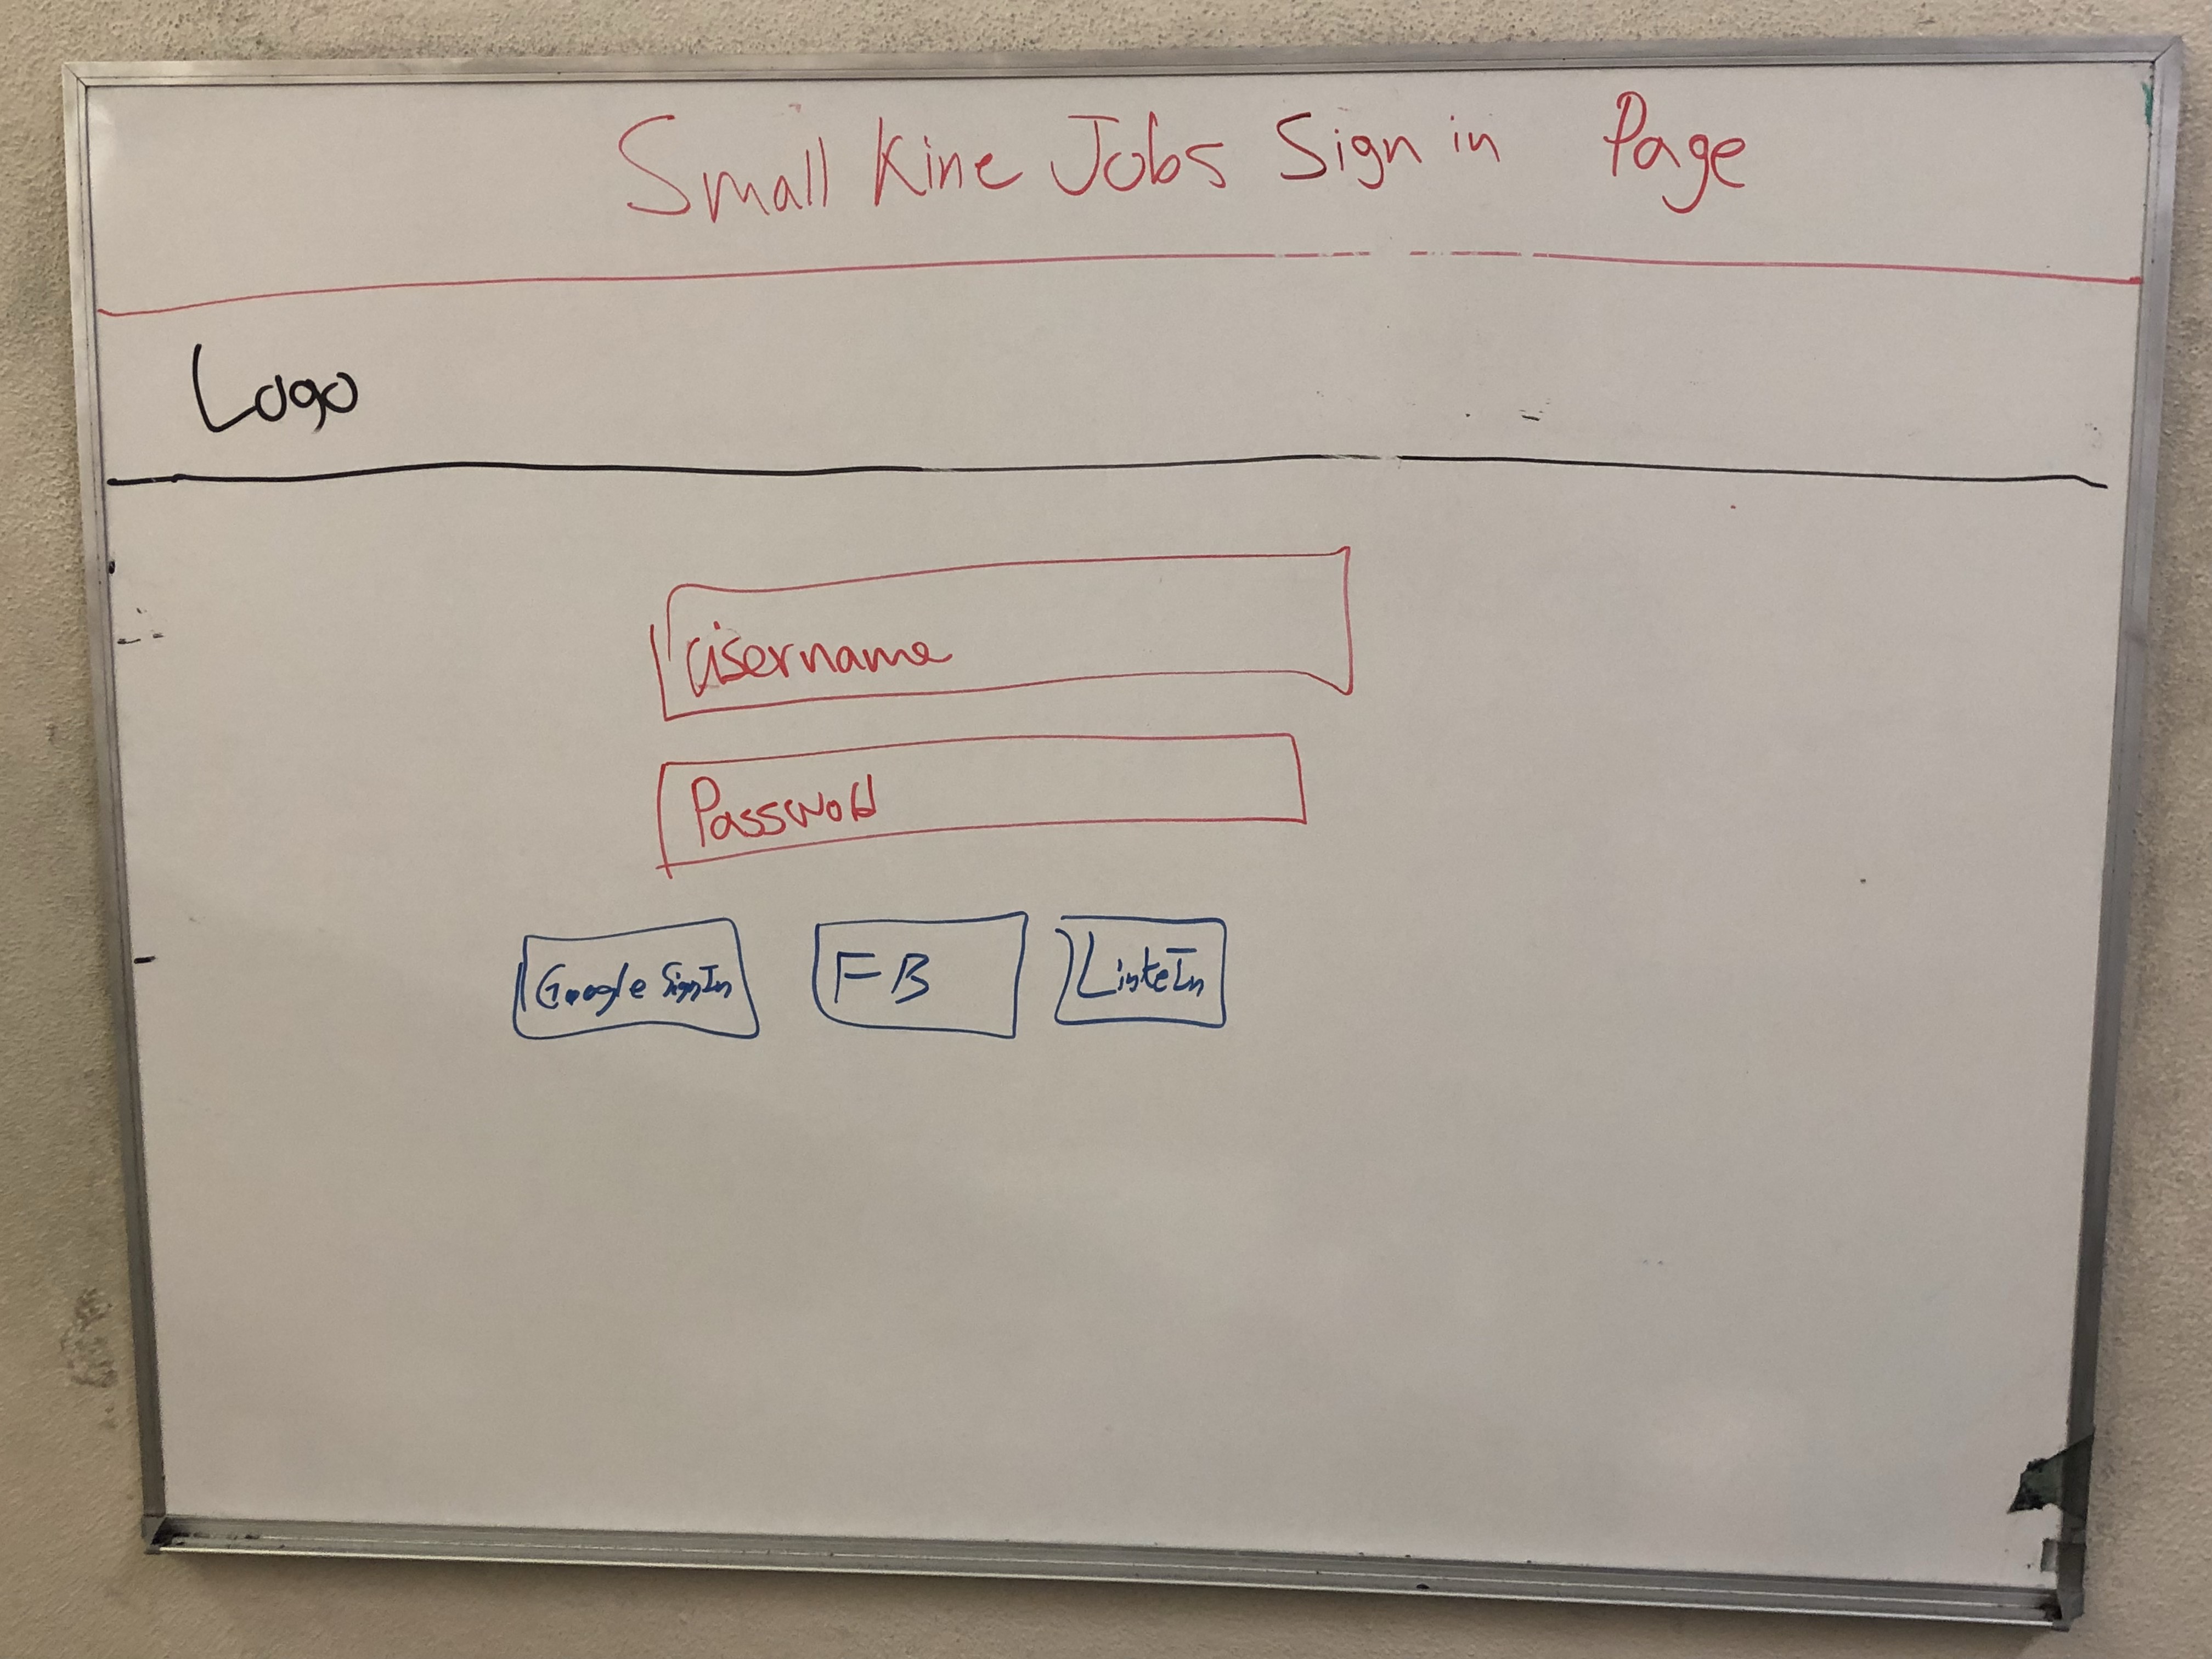 Small Kine Jobs Sign in Page
Logo
Username
Password
Google SignIn FB LinkeIn